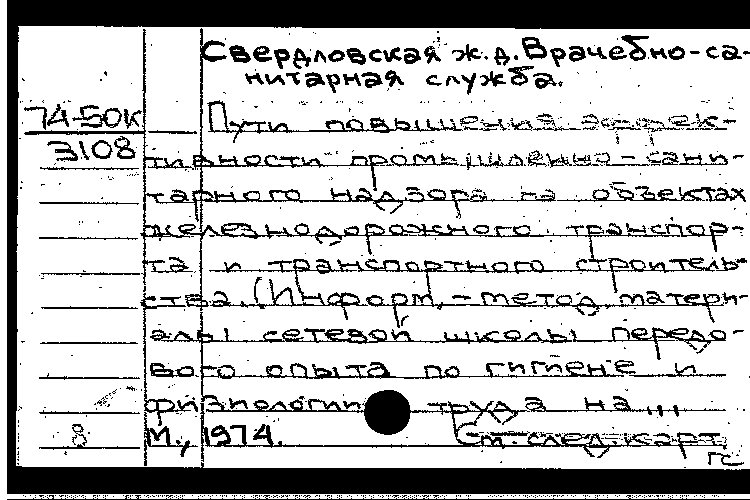 Свердловская ж.д. Врачебно-са-
нитарная служба.
74-50К
3108
Пути повышения эффек-
тивности промышленно-сани-
тарного надзора на объектах
железнодорожного транспор-
та и транспортного строитель-
ства. (Информ.-метод. матери-
алы сетевой школы передо-
вого опыта по гигиене и
физиологии труда на...
М., 1974.
См. след. карт.
гс